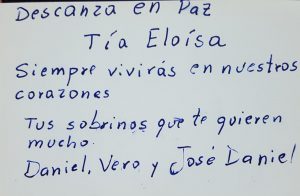 Descanza en Paz
Tía Eloísa
Siempre vivirás en nuestros
corazones
Tus sobrinos que te quieren
mucho.
Daniel, Vero y José Daniel